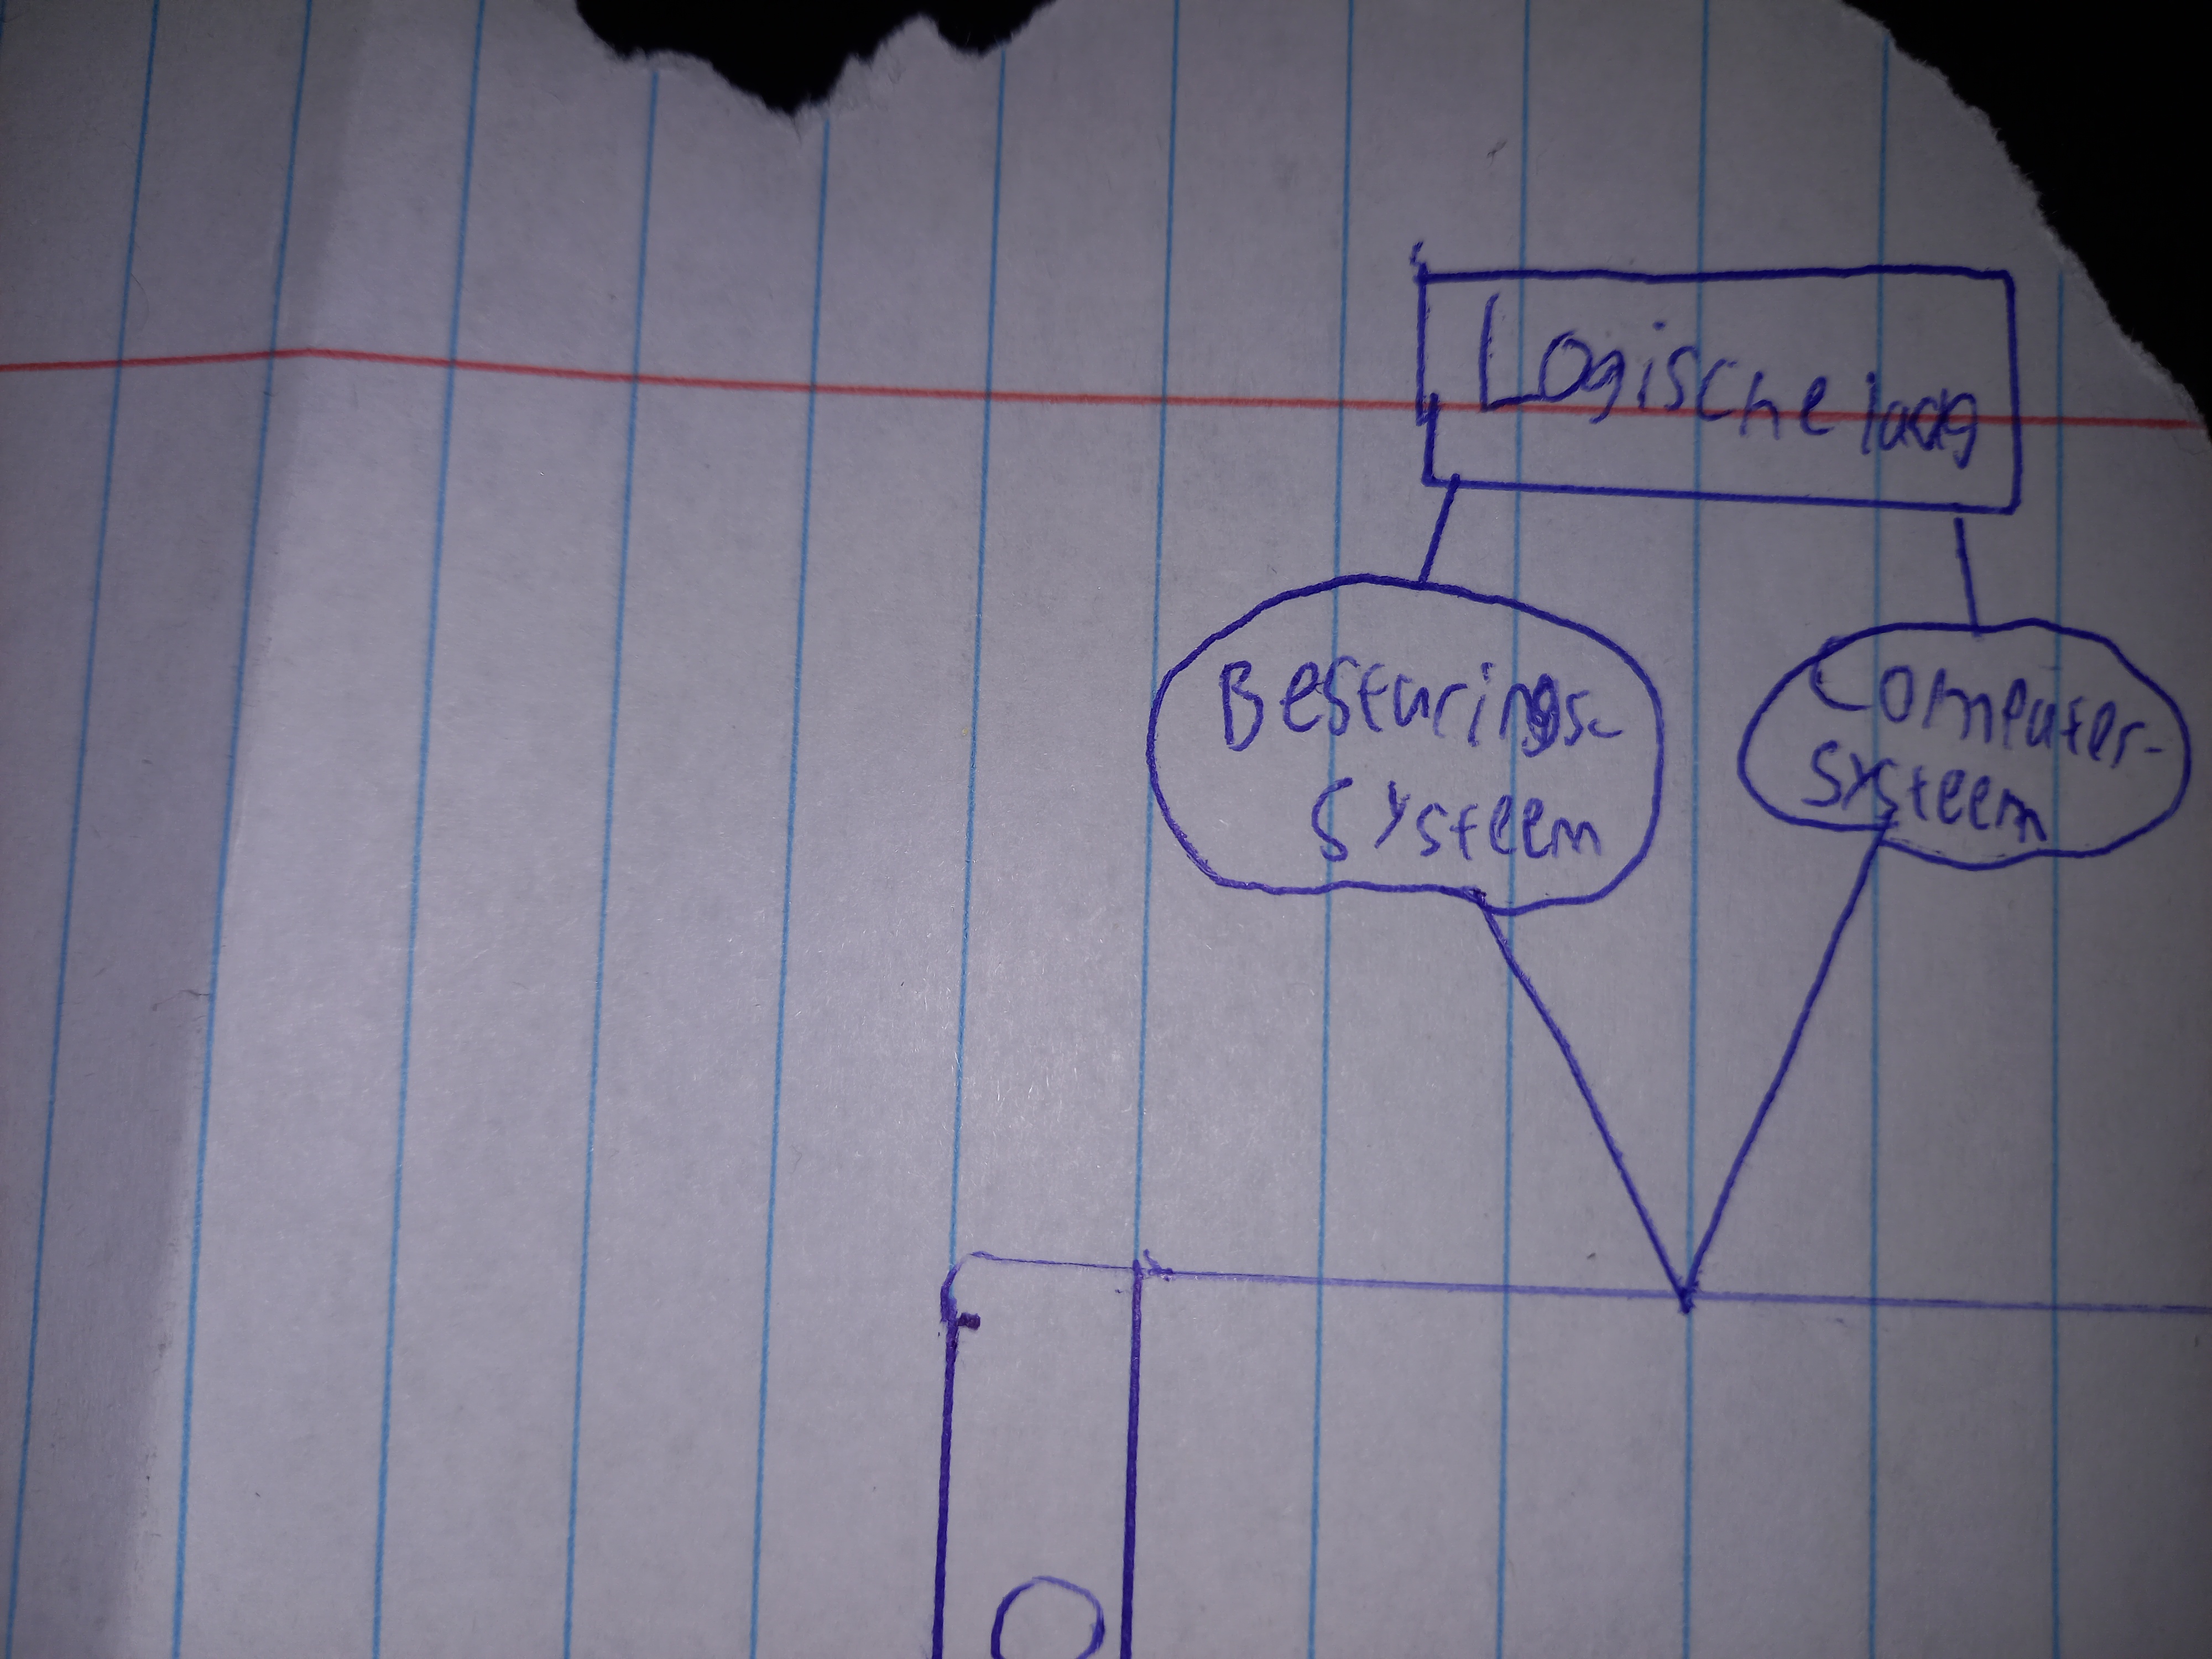 Logische laag
Besturings-
systeem
Computer-
systeem